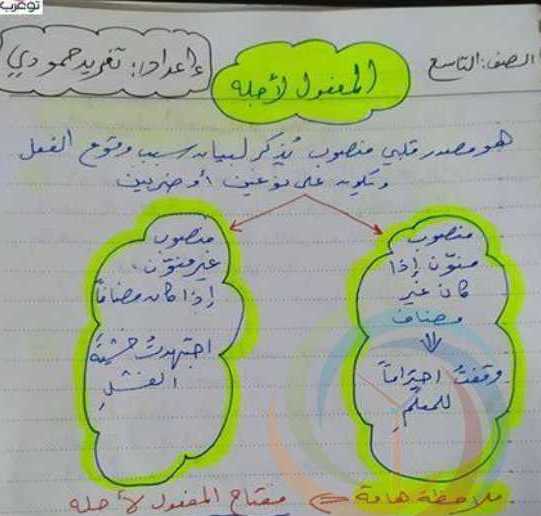 توعرب
الصف: التاسع
المفعول لأجله
إعداد: تغريد حمودي
هو مصدر قلبي منصوب يُذكر لبيان سبب وقوع الفعل
ويكون على نوعين أو ضربين
منصوب
منوّن إذا
كان غير
مضاف
وقفتُ احتراماً
للمعلّمِ
منصوب
غير منوّن
إذا كان مضافاً
اجتهدتُ خشيةَ
الفشلِ
ملاحظة هامة ⇐ مفتاح المفعول لأجله